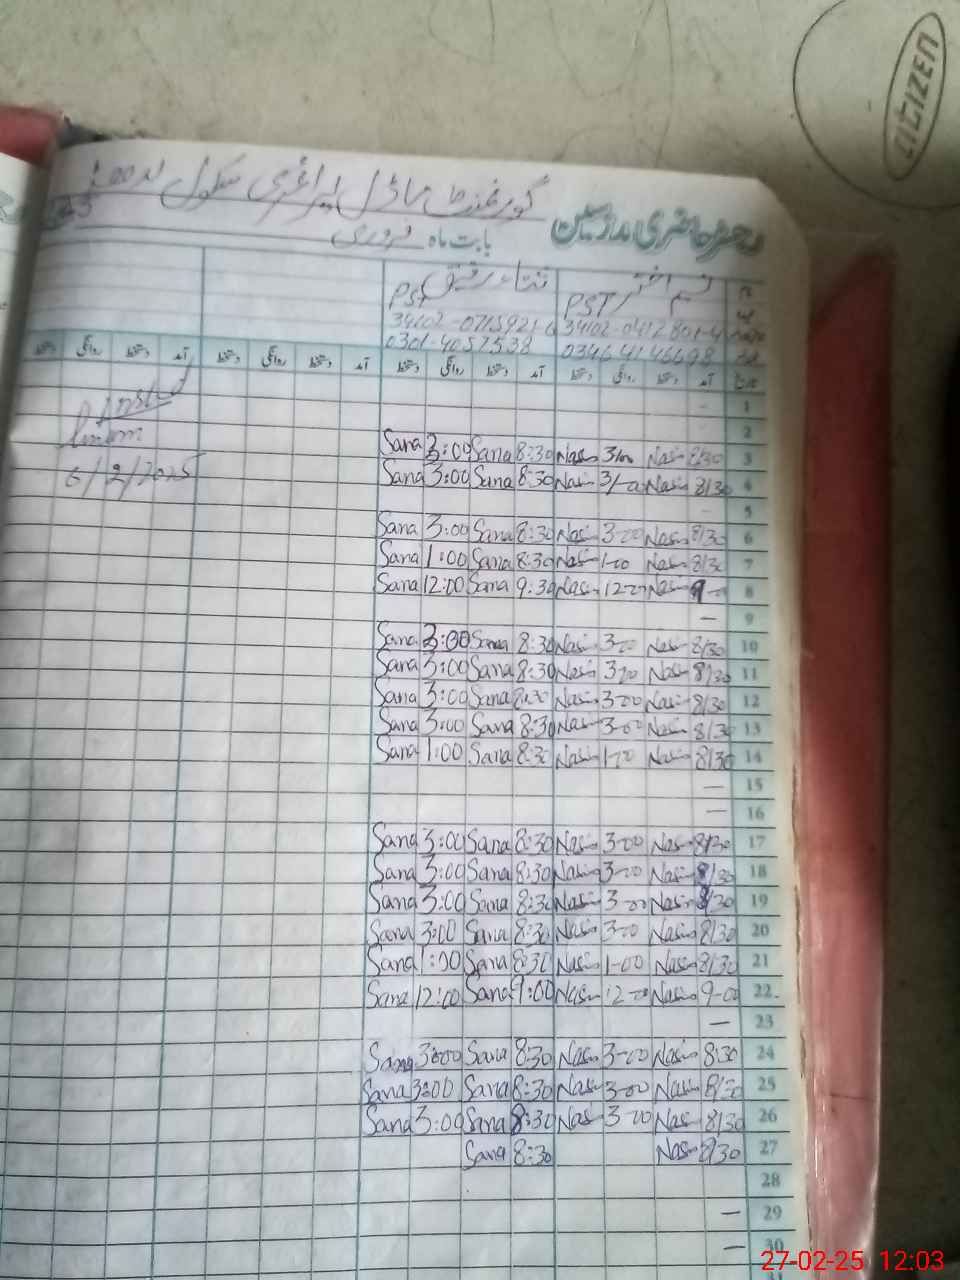 CITIZEN
گورنمنٹ ماڈل پرائمری سکول
رجسٹر حاضری مدرسین
بابت ماہ فروری
نسیم اختر ثناء رفیق
PST PST
34102-0412801-4 34102-0715921-6
03464146698 0301-4057538
تاریخ آمد دستخط روانگی دستخط آمد دستخط روانگی دستخط آمد دستخط روانگی دستخط آمد دستخط روانگی دستخط
1
2
Sana 3:00 Sana 8:30 Nasim 3/00 Nasim 8/30 3
Sana 3:00 Sana 8:30 Nasim 3/00 Nasim 8/30 4
6/2/2025
5
Sana 3:00 Sana 8:30 Nasim 3-00 Nasim 8/30 6
Sana 1:00 Sana 8:30 Nasim 1-00 Nasim 8/30 7
Sana 12:00 Sana 9:30 Nasim 12-00 Nasim 9-00 8
— 9
Sana 3:00 Sana 8:30 Nasim 3-00 Nasim 8/30 10
Sana 3:00 Sana 8:30 Nasim 3-00 Nasim 8/30 11
Sana 3:00 Sana 8:30 Nasim 3-00 Nasim 8/30 12
Sana 3:00 Sana 8:30 Nasim 3-00 Nasim 8/30 13
Sana 1:00 Sana 8:30 Nasim 1-00 Nasim 8/30 14
— 15
— 16
Sana 3:00 Sana 8:30 Nasim 3-00 Nasim 8/30 17
Sana 3:00 Sana 8:30 Nasim 3-00 Nasim 8/30 18
Sana 3:00 Sana 8:30 Nasim 3-00 Nasim 8/30 19
Sana 3:00 Sana 8:30 Nasim 3-00 Nasim 8/30 20
Sana 1:00 Sana 8:30 Nasim 1-00 Nasim 8/30 21
Sana 12:00 Sana 9:00 Nasim 12-00 Nasim 9-00 22
— 23
Sana 3:00 Sana 8:30 Nasim 3-00 Nasim 8/30 24
Sana 3:00 Sana 8:30 Nasim 3-00 Nasim 8/30 25
Sana 3:00 Sana 8:30 Nasim 3-00 Nasim 8/30 26
Sana 8:30 Nasim 8/30 27
28
— 29
— 30
31
27-02-25 12:03